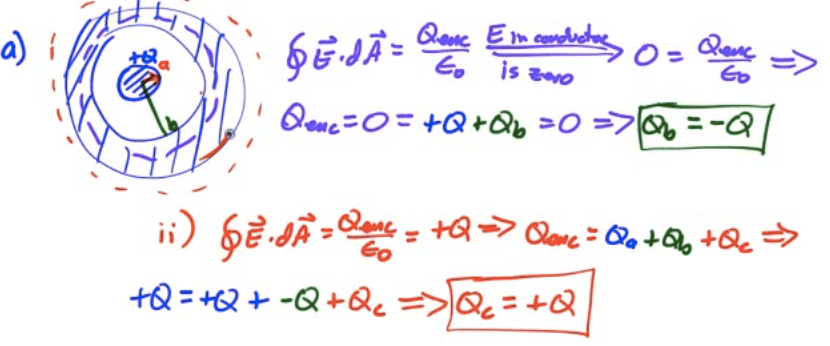 a) +Q a b ∮E⃗·dA⃗ = Qenc/ε₀ E in conductor is zero ⟶ 0 = Qenc/ε₀ ⟹
Qenc = 0 = +Q + Qb = 0 ⟹ Qb = -Q
ii) ∮E⃗·dA⃗ = Qenc/ε₀ = +Q ⟹ Qenc = Qa + Qb + Qc ⟹
+Q = +Q + -Q + Qc ⟹ Qc = +Q